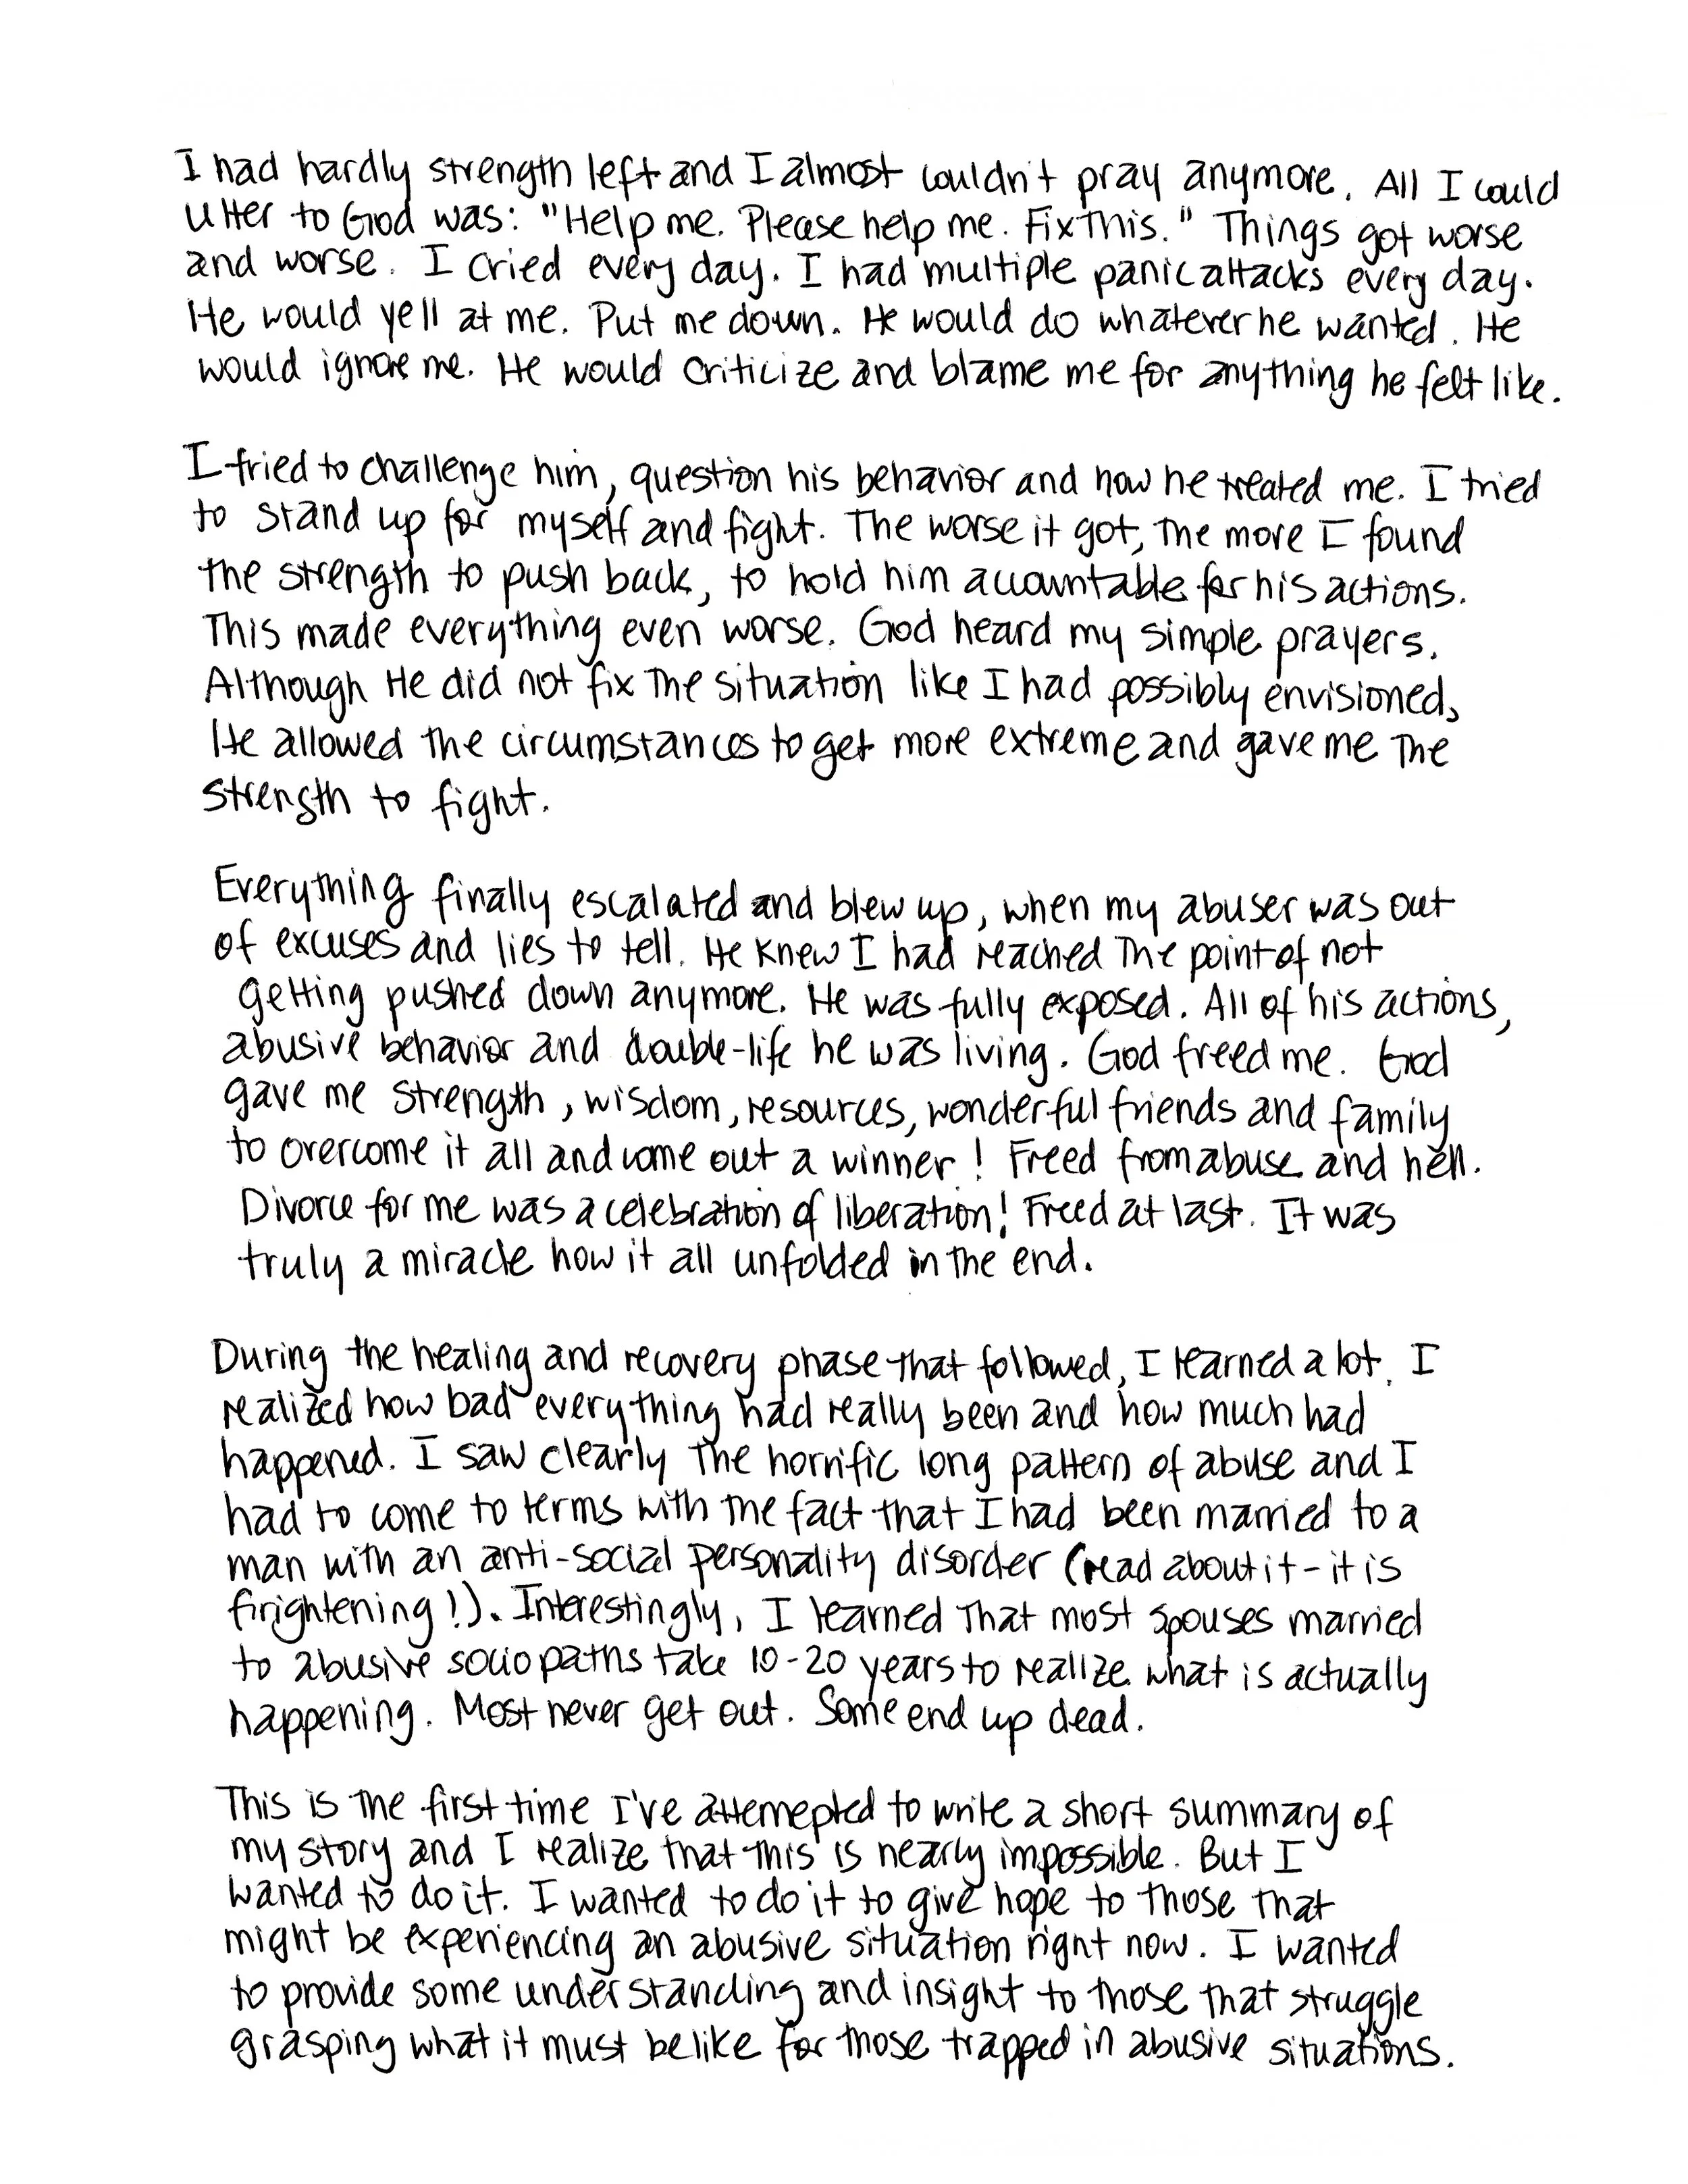 I had hardly strength left and I almost couldn't pray anymore. All I could
utter to God was: "Help me. Please help me. Fix this." Things got worse
and worse. I cried every day. I had multiple panic attacks every day.
He would yell at me. Put me down. He would do whatever he wanted. He
would ignore me. He would criticize and blame me for anything he felt like.
I tried to challenge him, question his behavior and how he treated me. I tried
to stand up for myself and fight. The worse it got, the more I found
the strength to push back, to hold him accountable for his actions.
This made everything even worse. God heard my simple prayers.
Although He did not fix the situation like I had possibly envisioned,
He allowed the circumstances to get more extreme and gave me the
strength to fight.
Everything finally escalated and blew up, when my abuser was out
of excuses and lies to tell. He knew I had reached the point of not
getting pushed down anymore. He was fully exposed. All of his actions,
abusive behavior and double-life he was living. God freed me. God
gave me strength, wisdom, resources, wonderful friends and family
to overcome it all and come out a winner! Freed from abuse and hell.
Divorce for me was a celebration of liberation! Freed at last. It was
truly a miracle how it all unfolded in the end.
During the healing and recovery phase that followed, I learned a lot. I
realized how bad everything had really been and how much had
happened. I saw clearly the horrific long pattern of abuse and I
had to come to terms with the fact that I had been married to a
man with an anti-social personality disorder (read about it - it is
firightening!). Interestingly, I learned that most spouses married
to abusive sociopaths take 10-20 years to realize what is actually
happening. Most never get out. Some end up dead.
This is the first time I've attemepted to write a short summary of
my story and I realize that this is nearly impossible. But I
wanted to do it. I wanted to do it to give hope to those that
might be experiencing an abusive situation right now. I wanted
to provide some understanding and insight to those that struggle
grasping what it must be like for those trapped in abusive situations.